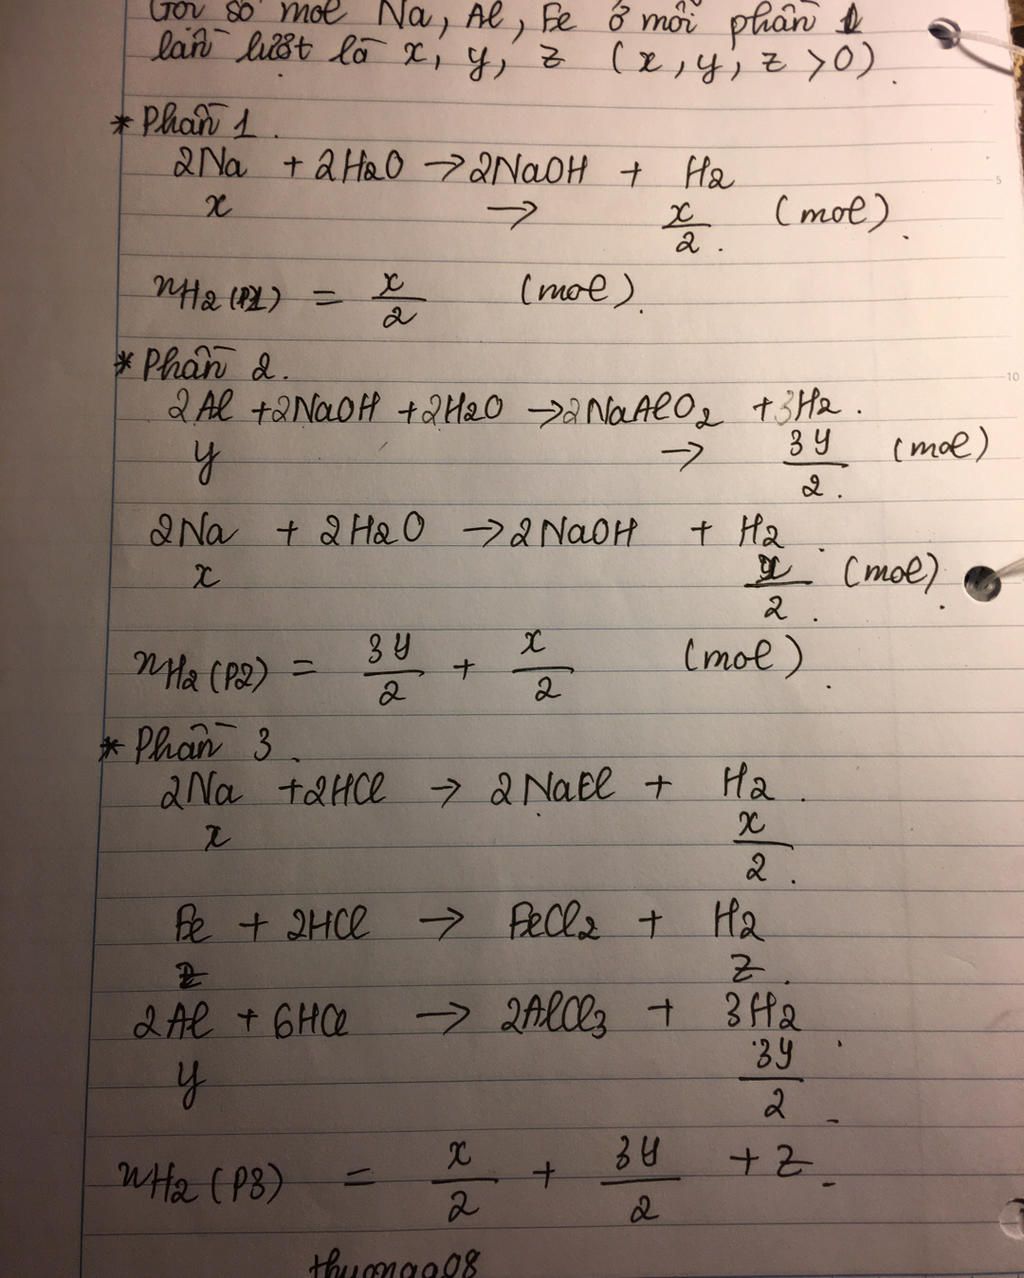 Gọi số mol Na, Al, Fe ở mỗi phần 1
lần lượt là x, y, z (x, y, z >0).
* Phần 1.
2Na + 2H2O → 2NaOH + H2
x → x/2. (mol).
nH2 (P1) = x/2 (mol).
* Phần 2.
2Al +2NaOH +2H2O →2NaAlO2 +3H2.
y → 3y/2. (mol)
2Na + 2H2O → 2NaOH + H2.
x x/2. (mol).
nH2 (P2) = 3y/2 + x/2 (mol).
* Phần 3.
2Na +2HCl → 2NaCl + H2.
x x/2.
Fe + 2HCl → FeCl2 + H2
z z.
2Al + 6HCl → 2AlCl3 + 3H2
y 3y/2
nH2 (P3) = x/2 + 3y/2 + z